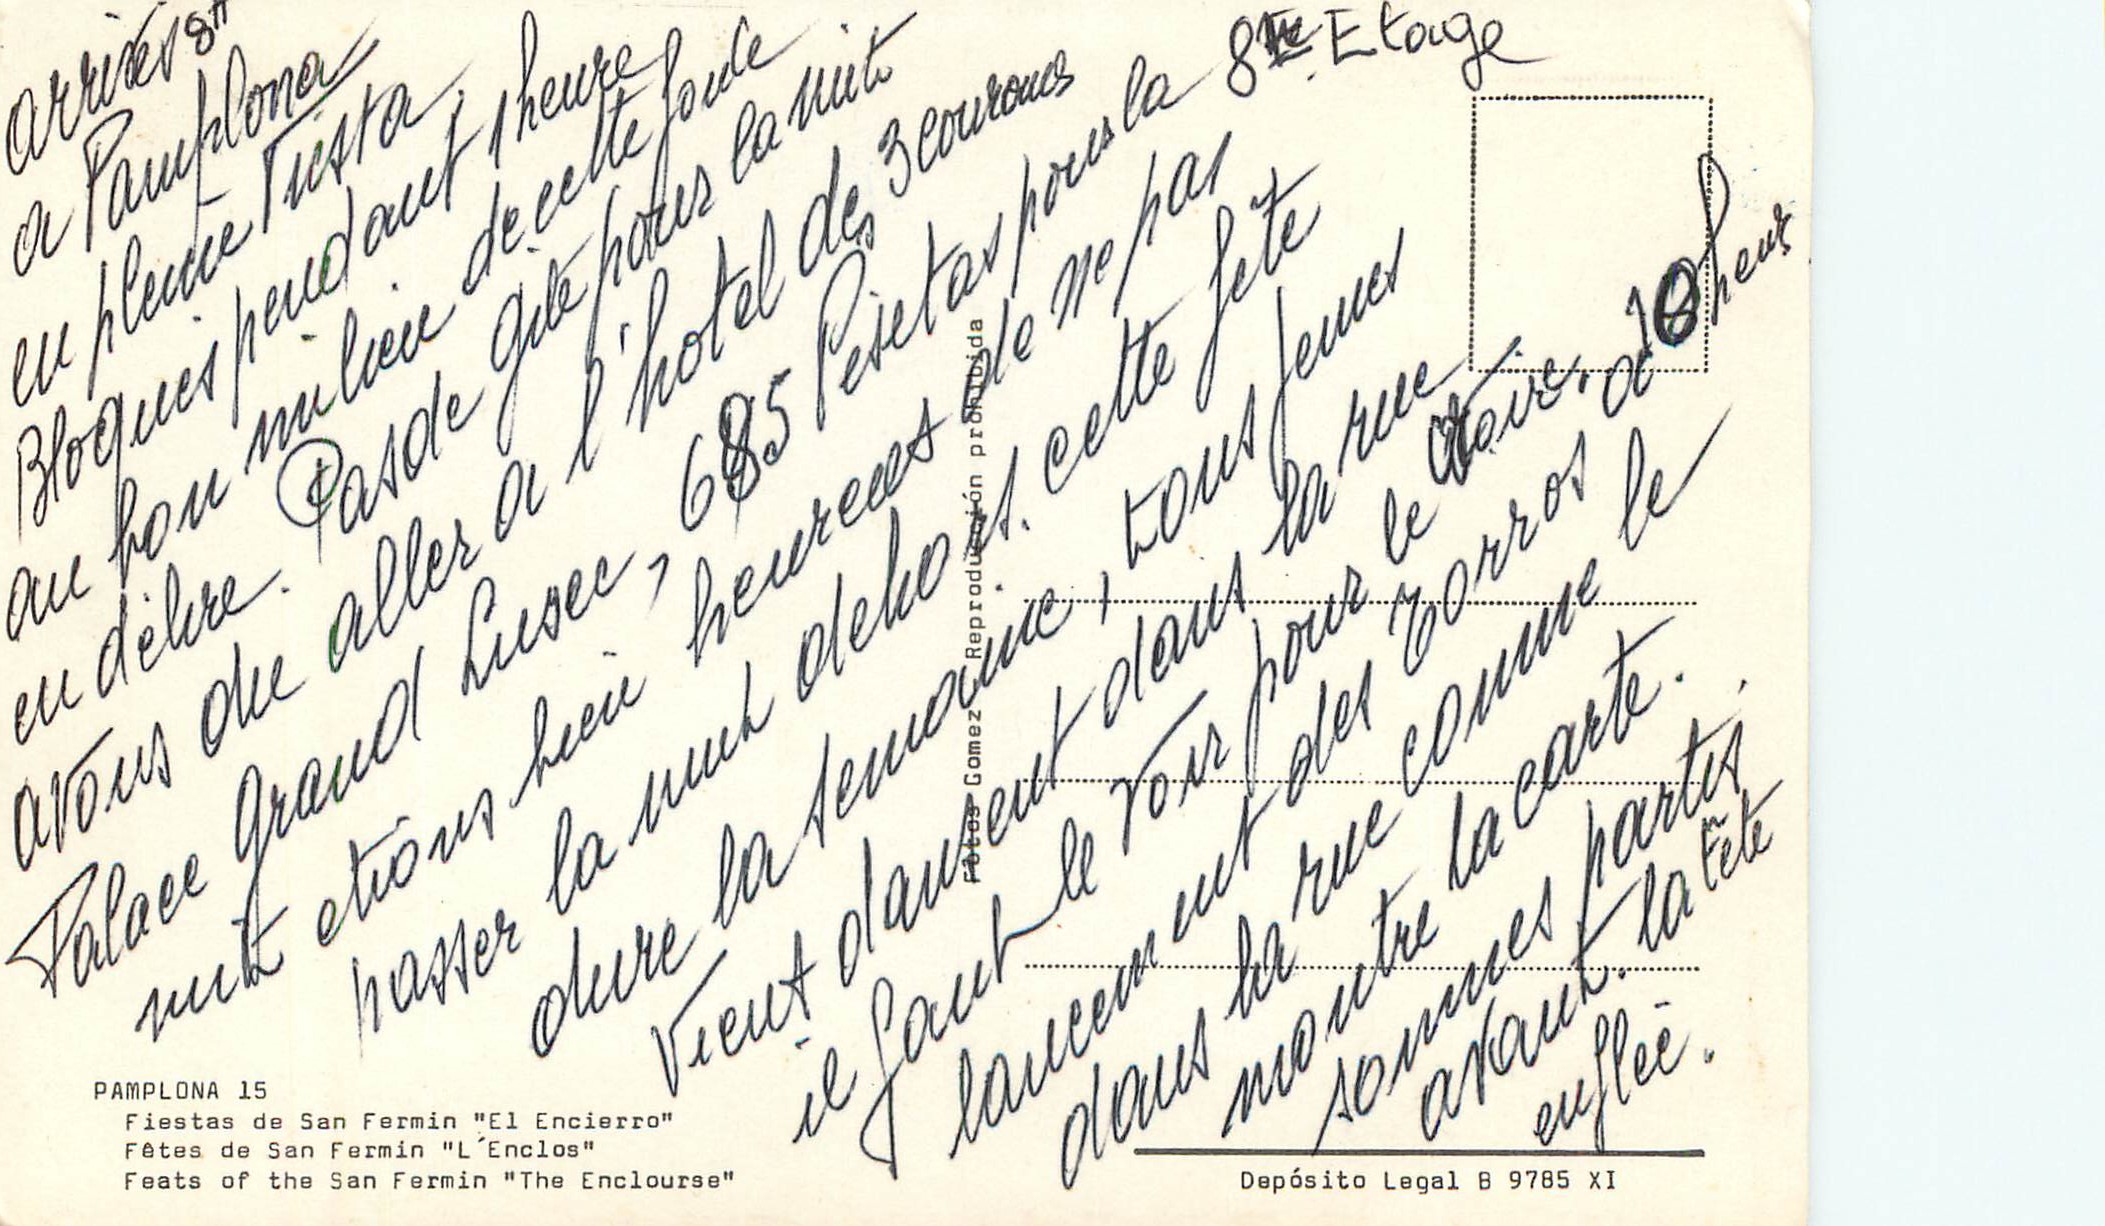 arrivés 8H
a Pamplona
en pleine Fiesta,
Bloques pendant 1 heure
au bon milieu de cette foule
en délire. Pas de gite pour la nuit
avons du aller a l'hotel des 3 couronnes
Palace Grand Lusec, 685 Pesetas pour la 8me Etage
nuit etions bien heureux de ne pas
passer la nuit dehors. cette fête
dure la semaine, tous jeunes
vient dansent dans la rue
il faut le voir pour le croire. a 10 heures
lancement des torros
dans la rue comme le
montre la carte.
sommes partis
avant. la tête
enflée.
Fotos Gomez Reproducción prohibida
PAMPLONA 15
Fiestas de San Fermin "El Encierro"
Fêtes de San Fermin "L´Enclos"
Feats of the San Fermin "The Enclourse"
Depósito Legal B 9785 XI